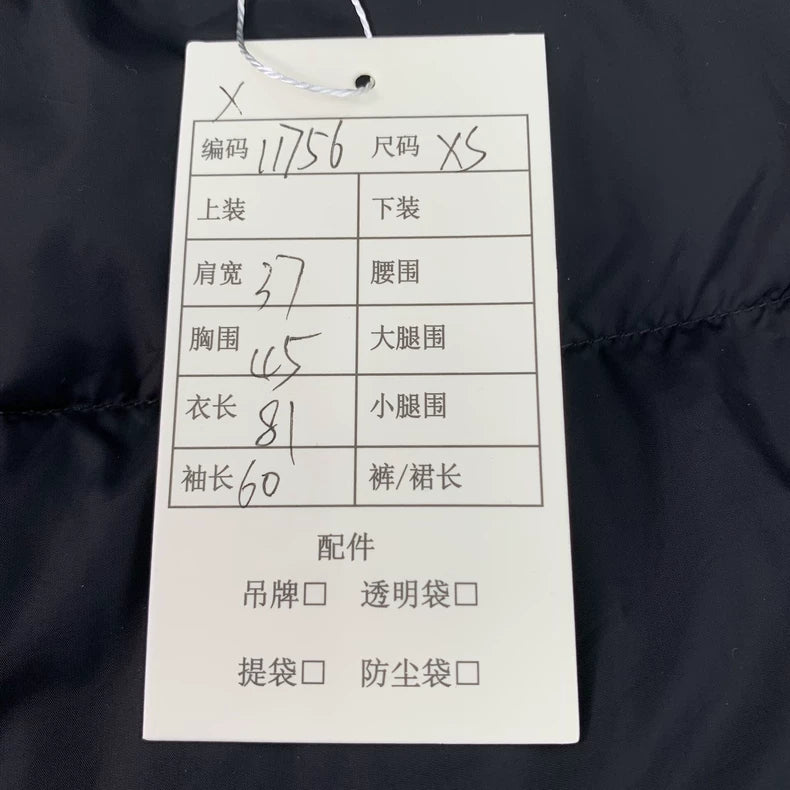 X
编码 11756 尺码 XS
上装 下装
肩宽 37 腰围
胸围 45 大腿围
衣长 81 小腿围
袖长 60 裤/裙长
配件
吊牌□ 透明袋□
提袋□ 防尘袋□